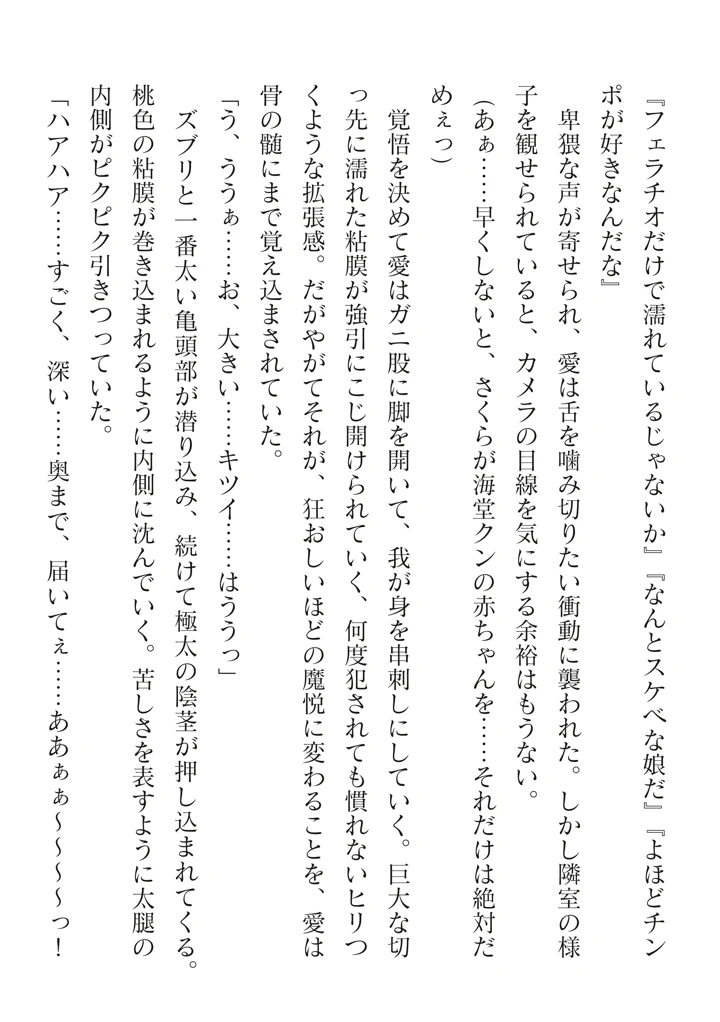 『フェラチオだけで濡れているじゃないか』『なんとスケベな娘だ』『よほどチン
ポが好きなんだな』
卑猥な声が寄せられ、愛は舌を噛み切りたい衝動に襲われた。しかし隣室の様
子を観せられていると、カメラの目線を気にする余裕はもうない。
(あぁ……早くしないと、さくらが海堂クンの赤ちゃんを……それだけは絶対だ
めぇっ)
覚悟を決めて愛はガニ股に脚を開いて、我が身を串刺しにしていく。巨大な切
っ先に濡れた粘膜が強引にこじ開けられていく、何度犯されても慣れないヒリつ
くような拡張感。だがやがてそれが、狂おしいほどの魔悦に変わることを、愛は
骨の髄にまで覚え込まされていた。
「う、ううぁ……お、大きい……キツイ……はううっ」
ズブリと一番太い亀頭部が潜り込み、続けて極太の陰茎が押し込まれてくる。
桃色の粘膜が巻き込まれるように内側に沈んでいく。苦しさを表すように太腿の
内側がピクピク引きつっていた。
「ハアハア……すごく、深い……奥まで、届いてぇ……ああぁぁ～～～～っ！